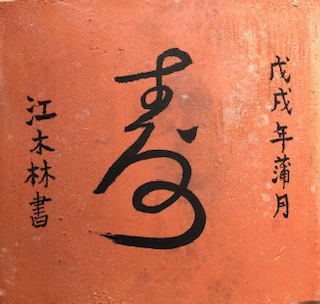 戊戌年蒲月
寿
江木林書